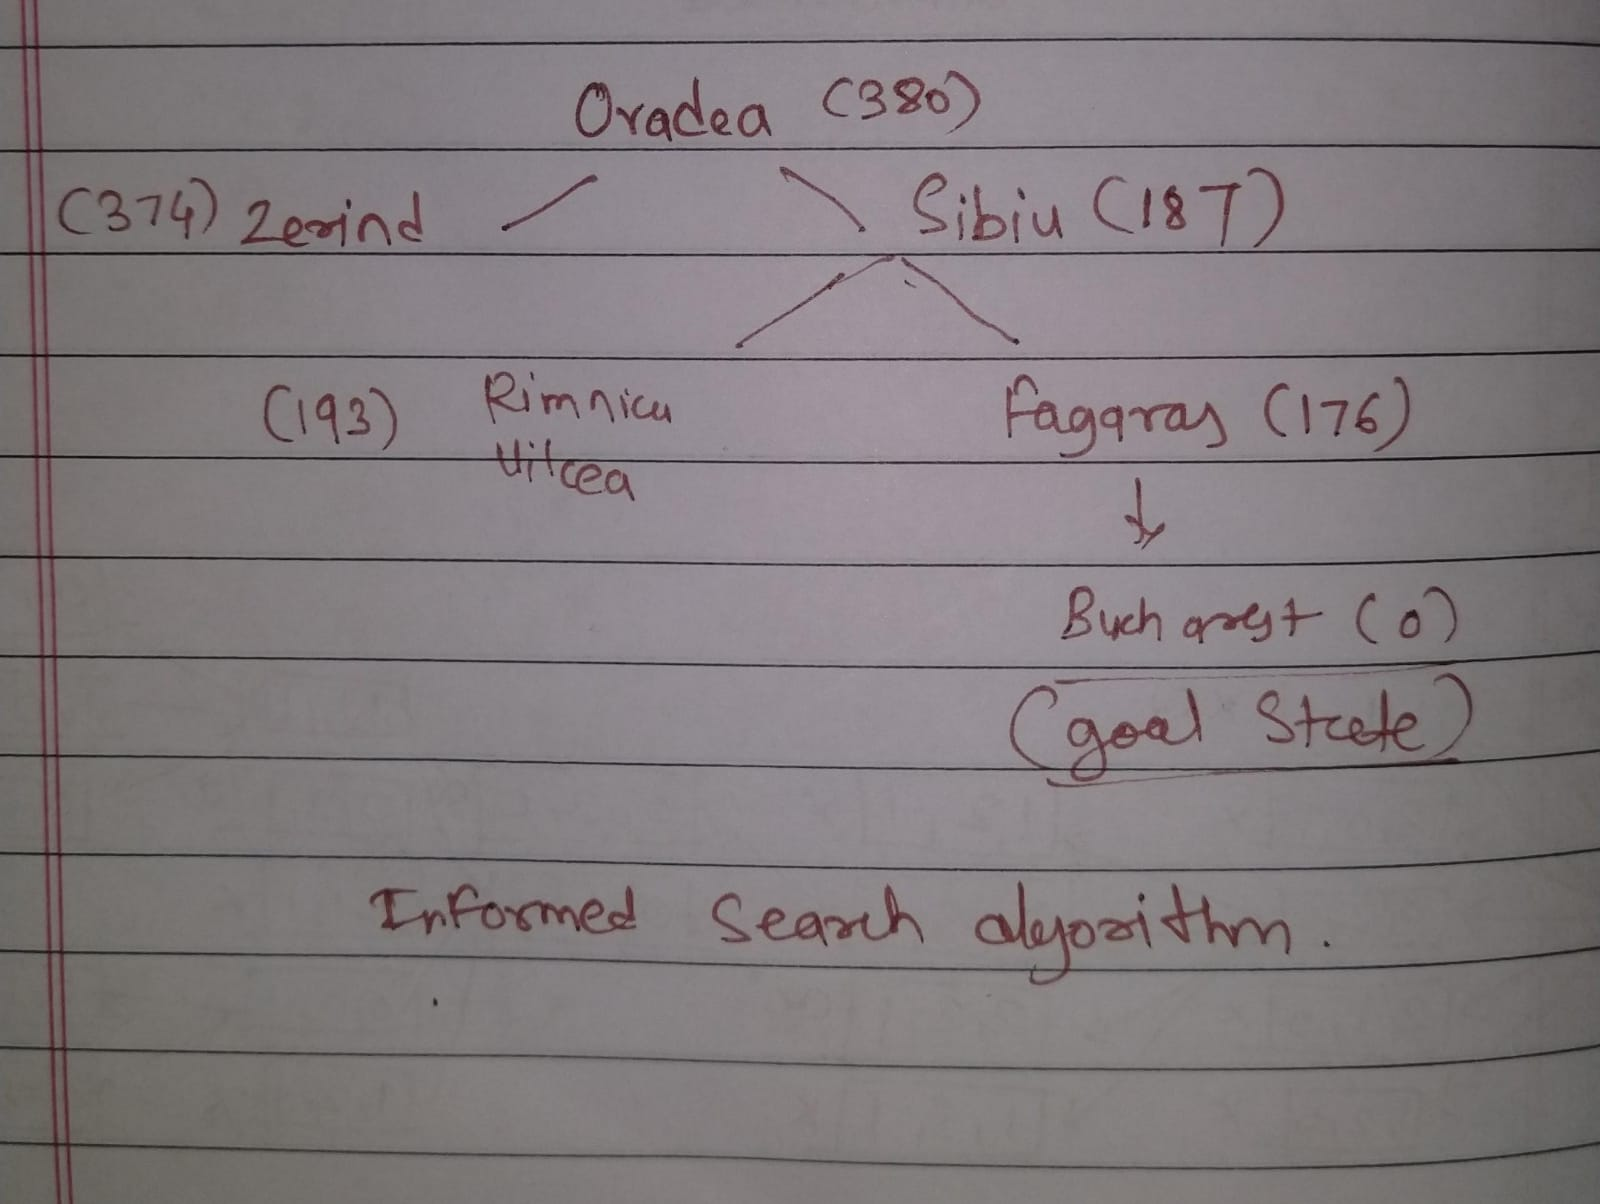 Oradea (380)
(374) Zerind Sibiu (187)
(193) Rimnicu Fagaras (176)
Vilcea
Bucharest (0)
(goal State)
Informed Search algorithm.